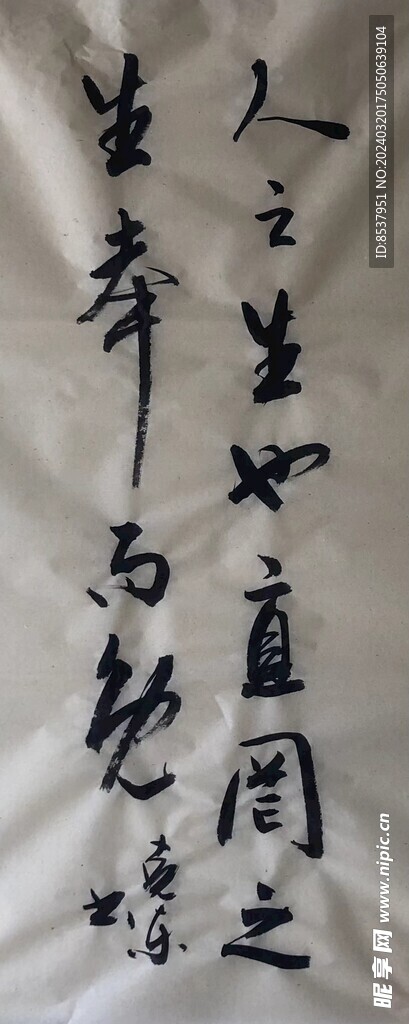 人之生也直罔之
生幸而免
ID:8537951 NO:20240320175050639104
昵享网 www.nipic.cn